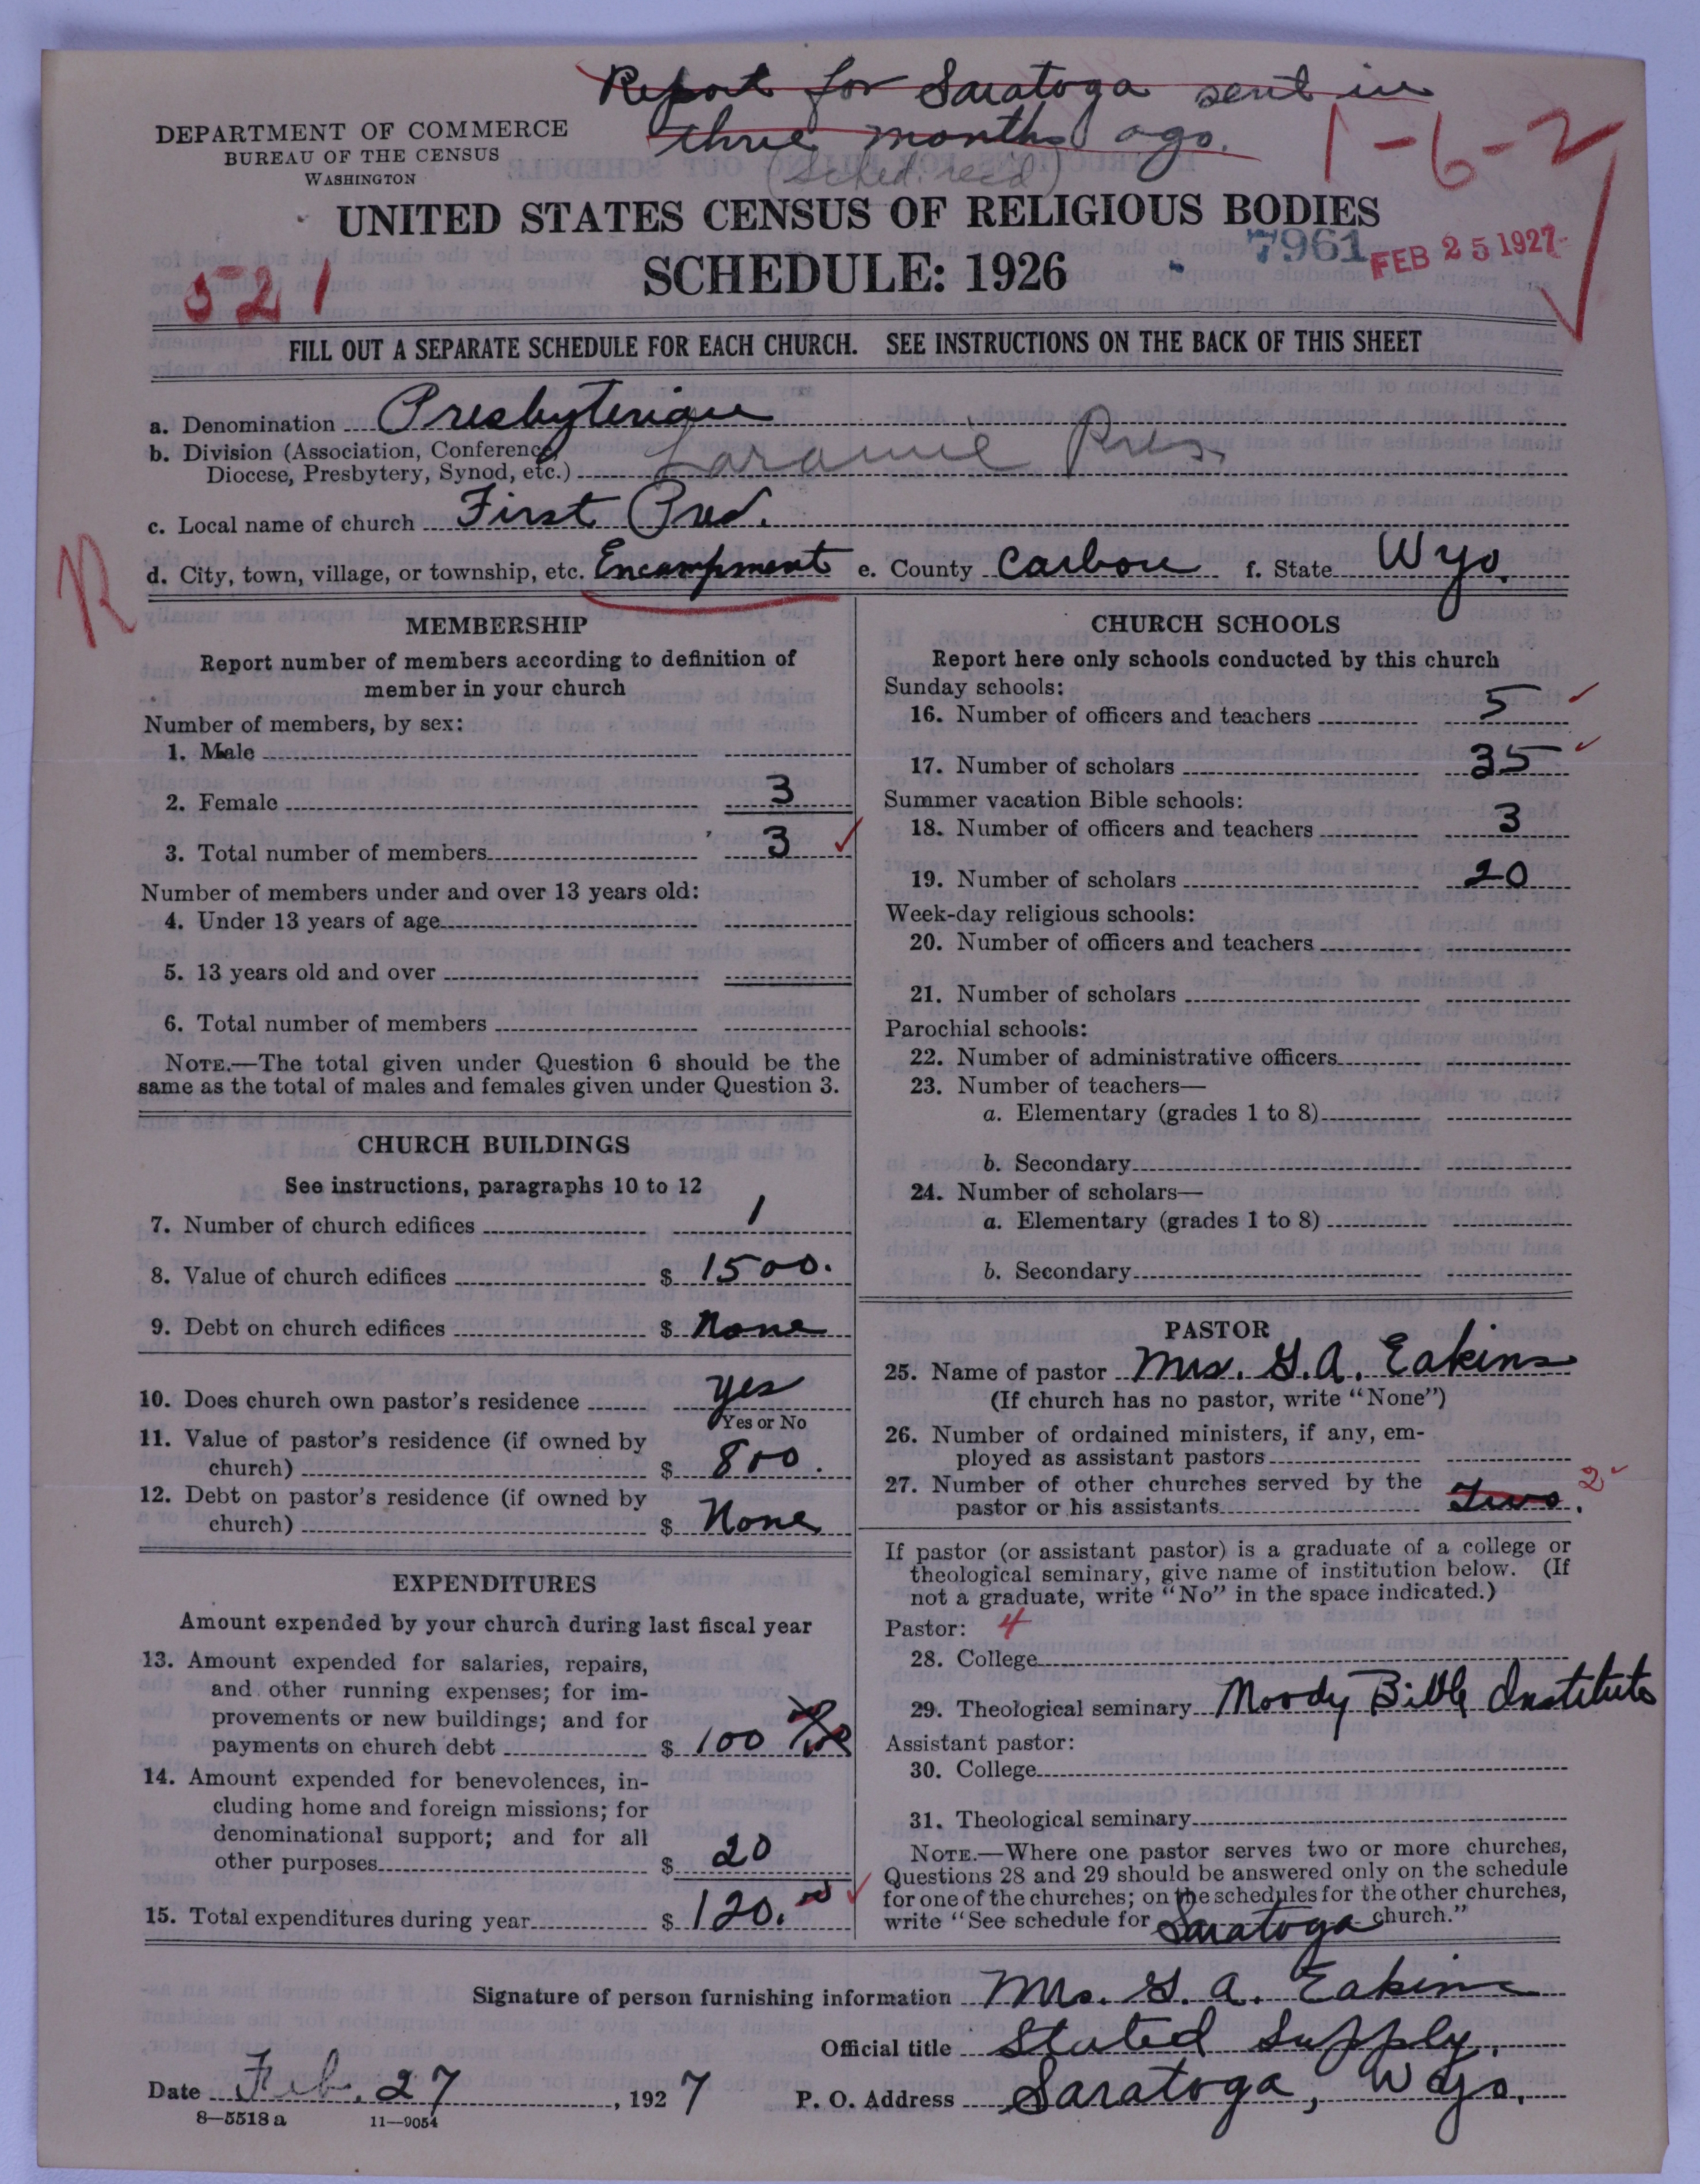 Report for Saratoga sent in
three months ago.
(Sched. rec'd)
1-6-2
DEPARTMENT OF COMMERCE
BUREAU OF THE CENSUS
WASHINGTON
UNITED STATES CENSUS OF RELIGIOUS BODIES
7961 FEB 25 1927
521
SCHEDULE: 1926
FILL OUT A SEPARATE SCHEDULE FOR EACH CHURCH. SEE INSTRUCTIONS ON THE BACK OF THIS SHEET
a. Denomination Presbyterian
b. Division (Association, Conference,
Diocese, Presbytery, Synod, etc.) Laramie Pres.
c. Local name of church First Pres.
R
d. City, town, village, or township, etc. Encampment e. County Carbon f. State Wyo.
MEMBERSHIP
Report number of members according to definition of
member in your church
Number of members, by sex:
1. Male
2. Female 3
3. Total number of members 3
Number of members under and over 13 years old:
4. Under 13 years of age
5. 13 years old and over
6. Total number of members
NOTE.—The total given under Question 6 should be the
same as the total of males and females given under Question 3.
CHURCH BUILDINGS
See instructions, paragraphs 10 to 12
7. Number of church edifices 1
8. Value of church edifices $ 1500.
9. Debt on church edifices $ None
10. Does church own pastor's residence yes
Yes or No
11. Value of pastor's residence (if owned by
church) $ 800.
12. Debt on pastor's residence (if owned by
church) $ None
EXPENDITURES
Amount expended by your church during last fiscal year
13. Amount expended for salaries, repairs,
and other running expenses; for im-
provements or new buildings; and for
payments on church debt $ 100
14. Amount expended for benevolences, in-
cluding home and foreign missions; for
denominational support; and for all
other purposes $ 20
15. Total expenditures during year $ 120.
CHURCH SCHOOLS
Report here only schools conducted by this church
Sunday schools:
16. Number of officers and teachers 5
17. Number of scholars 35
Summer vacation Bible schools:
18. Number of officers and teachers 3
19. Number of scholars 20
Week-day religious schools:
20. Number of officers and teachers
21. Number of scholars
Parochial schools:
22. Number of administrative officers
23. Number of teachers—
a. Elementary (grades 1 to 8)
b. Secondary
24. Number of scholars—
a. Elementary (grades 1 to 8)
b. Secondary
PASTOR
25. Name of pastor Mrs. G. A. Eakins
(If church has no pastor, write "None")
26. Number of ordained ministers, if any, em-
ployed as assistant pastors
27. Number of other churches served by the
pastor or his assistants Two. 2
If pastor (or assistant pastor) is a graduate of a college or
theological seminary, give name of institution below. (If
not a graduate, write "No" in the space indicated.)
Pastor: 4
28. College
29. Theological seminary Moody Bible Institute
Assistant pastor:
30. College
31. Theological seminary
NOTE.—Where one pastor serves two or more churches,
Questions 28 and 29 should be answered only on the schedule
for one of the churches; on the schedules for the other churches,
write "See schedule for Saratoga church."
Signature of person furnishing information Mrs. G. A. Eakins
Official title Stated Supply.
Date Feb. 27, 1927 P. O. Address Saratoga, Wyo.
8—5518 a 11—9054